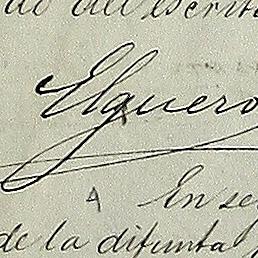 do del escrito
Elguero
4 En se
de la difunta